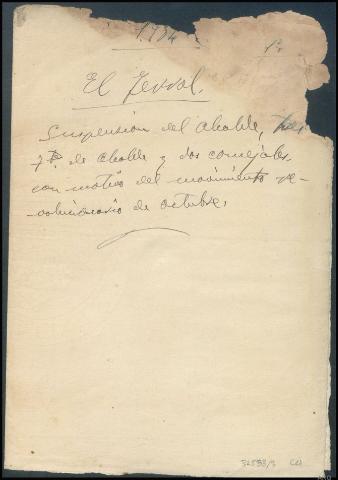 1.934
1º
El Ferrol.
Suspensión del alcalde, tres
tes. de alcalde y dos concejales,
con motivo del movimiento re-
volucionario de octubre.